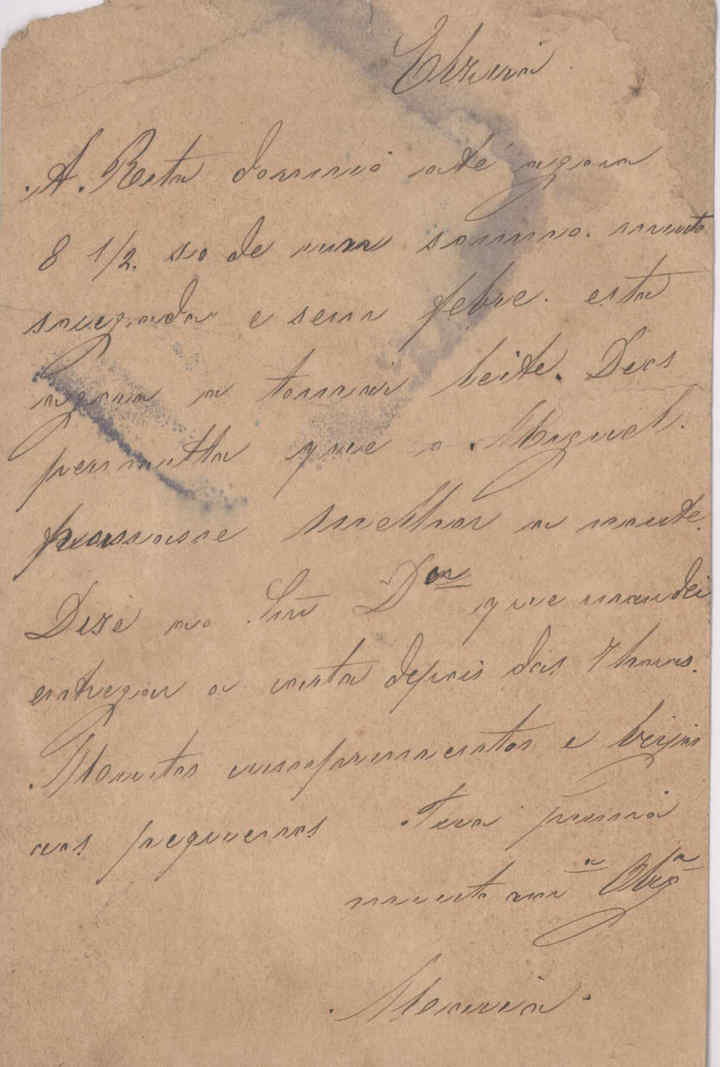 Elzira
A Rita dormiu até agora
8 1/2. so de um somno. muito
socegada e sem febre. esta
agora a tomar leite. Deos
permitta que o Miguel
passasse melhor a noute.
Dize ao Snr Dor que mandei
entregar a carta depois das 7 horas.
Muitos cumprimentos e beijos
aos pequenos Tua prima
muito amª Obrgª
Maria.